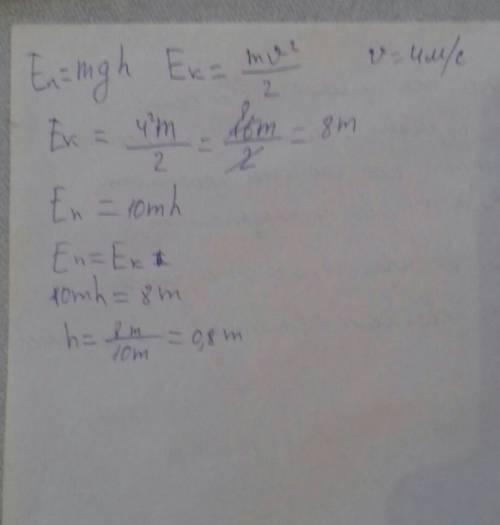 Eп=mgh Eк = mv²/2 v=4м/с
Eк = 4²m/2 = 16m/2 = 8m
Eп = 10mh
Eп=Eк
10mh = 8m
h= 8m/10m = 0,8 m